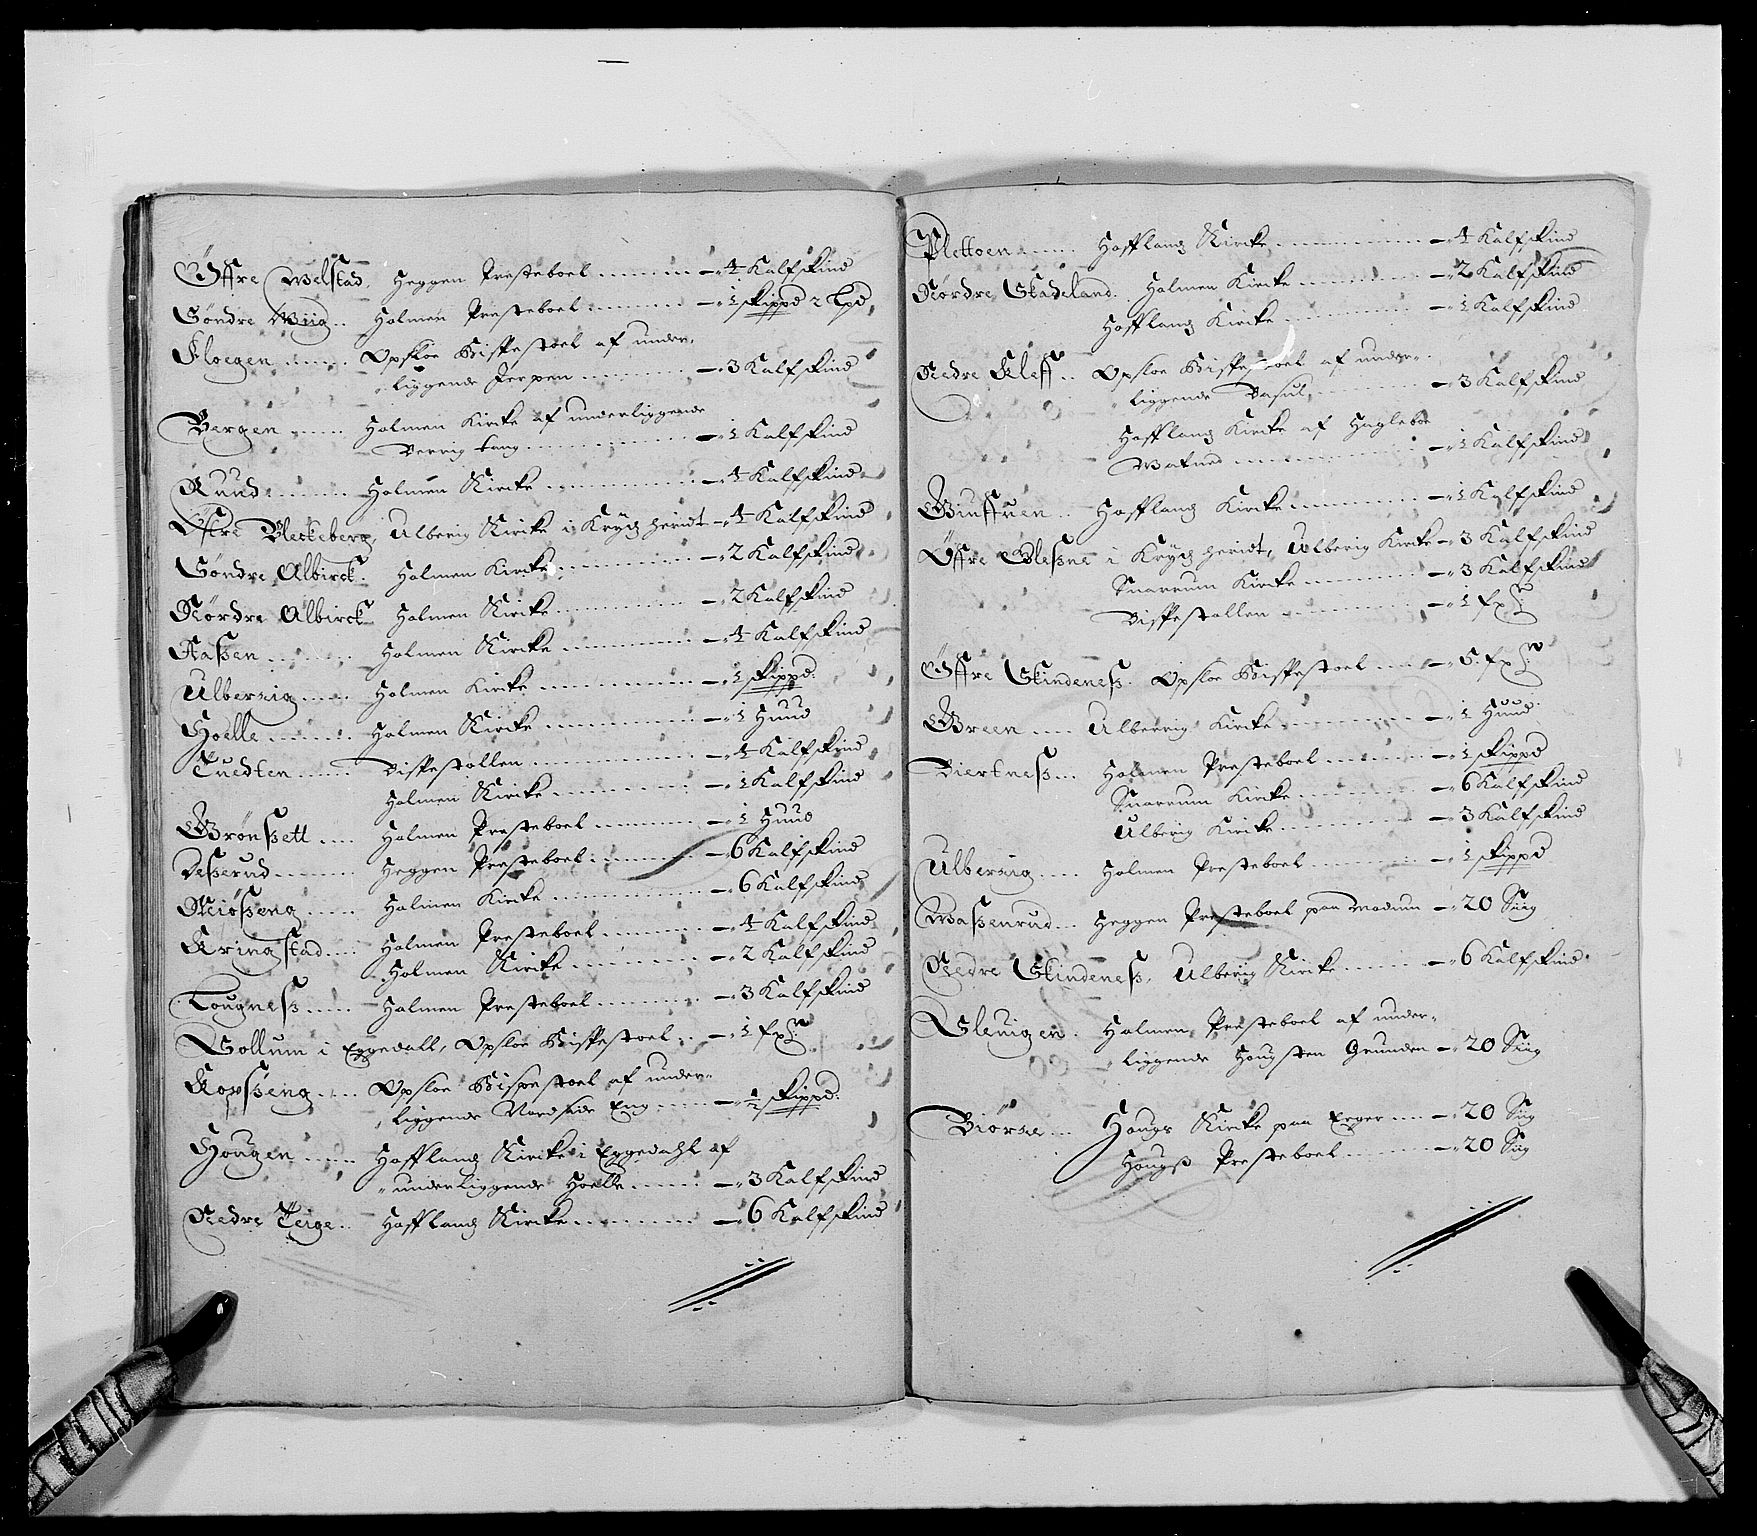 Øffre Welstad, Heggen Presteboel ........ 4 Kalfskind
Søndre Wiig .. Holmen Presteboel ........ 1 skippd 2 Lpd,
Floegen ....... Opsloe Bispestoel af under-
liggende Jerpen ........ 3 Kalfskind
Bergen ...... Holmen Kircke af underliggende
........ 1 Kalfskind
Ruud ........ Holmen Kircke ........ 4 Kalfskind
Øffre Bleckeberg, Ulberig Kircke i Krydzheridt 4 Kalfskind
Søndre Albirck. Holmen Kircke ........ 2 Kalfskind
Nørdre Albirck Holmen Kircke ........ 2 Kalfskind
Aaßen ........ Holmen Kircke ........ 4 Kalfskind
Ulberrig ..... Holmen Kircke ........ 1 skippd.
Hoelle ........ Holmen Kircke ........ 1 Huud
Tuedten ...... Bispestollen ........ 4 Kalfskind
Holmen Kircke ........ 1 Kalfskind
Grønßett .... Holmen Presteboel ........ 1 Huud
Deßerud ........ Heggen Presteboel ........ 6 Kalfskind
Miøßeng ..... Holmen Kircke ........ 6 Kalfskind
Kringstad .... Holmen Presteboel ........ 4 Kalfskind
Holmen Kircke ........ 2 Kalfskind
Lougneß ..... Holmen Presteboel ........ 3 Kalfskind
Gollum i Eggedall, Opsloe Bispestoel .. 1 fxr
Kopßeng .... Opsloe Bispestoel af under-
liggende Nordseide Eng ..... ½ skippd.
Hougen ...... Hofflandz Kircke i Eggedahl af
underliggende Hoelle ...... 3 Kalfskind
Nedre Teige .. Hofflandz Kircke ........ 6 Kalfskind
Plettoen ...... Hofflandz Kircke ........ 4 Kalfskind
Nørdre Skadeland. Holmen Kircke ........ 2 Kalfskind
Hofflandz Kircke ........ 1 Kalfskind
Nedre Kleff .. Opsloe Bispestoel af under-
liggende Dasul, ........ 3 Kalfskind
Hofflandz Kircke af Hagleboe
Watned ........ 1 Kalfskind
Gulfsuen .. Hofflandz Kircke ........ 1 Kalfskind
Øffre Gleßne i Krydzheridt, Ulberig Kircke 3 Kalfskind
Snarrum Kircke ........ 3 Kalfskind
Bispestollen ........ 1 fxr
Øffre Skindeneß. Opsloe Bispestoel .... 5. fxr
Green .... Ulberrig Kircke ........ 1 Huud
Biertneß ... Holmen Presteboel ........ 1 skippd
Snarrum Kircke ........ 6 Kalfskind
Ulberig Kircke ........ 3 Kalfskind
Ulberrig .... Holmen Presteboel ........ 1 skippd
Waßenrud ... Heggen Presteboel paa Modum 20 Siig
Nedre Skindeneß, Ulberig Kircke ...... 6 Kalfskind
Gleuigen . Holmen Presteboel af under-
liggende Hougsten Grunden 20 Siig
Biøre ... Hougs Kircke paa Egger .... 20 Siig
Hougß Presteboel ........ 20 Siig